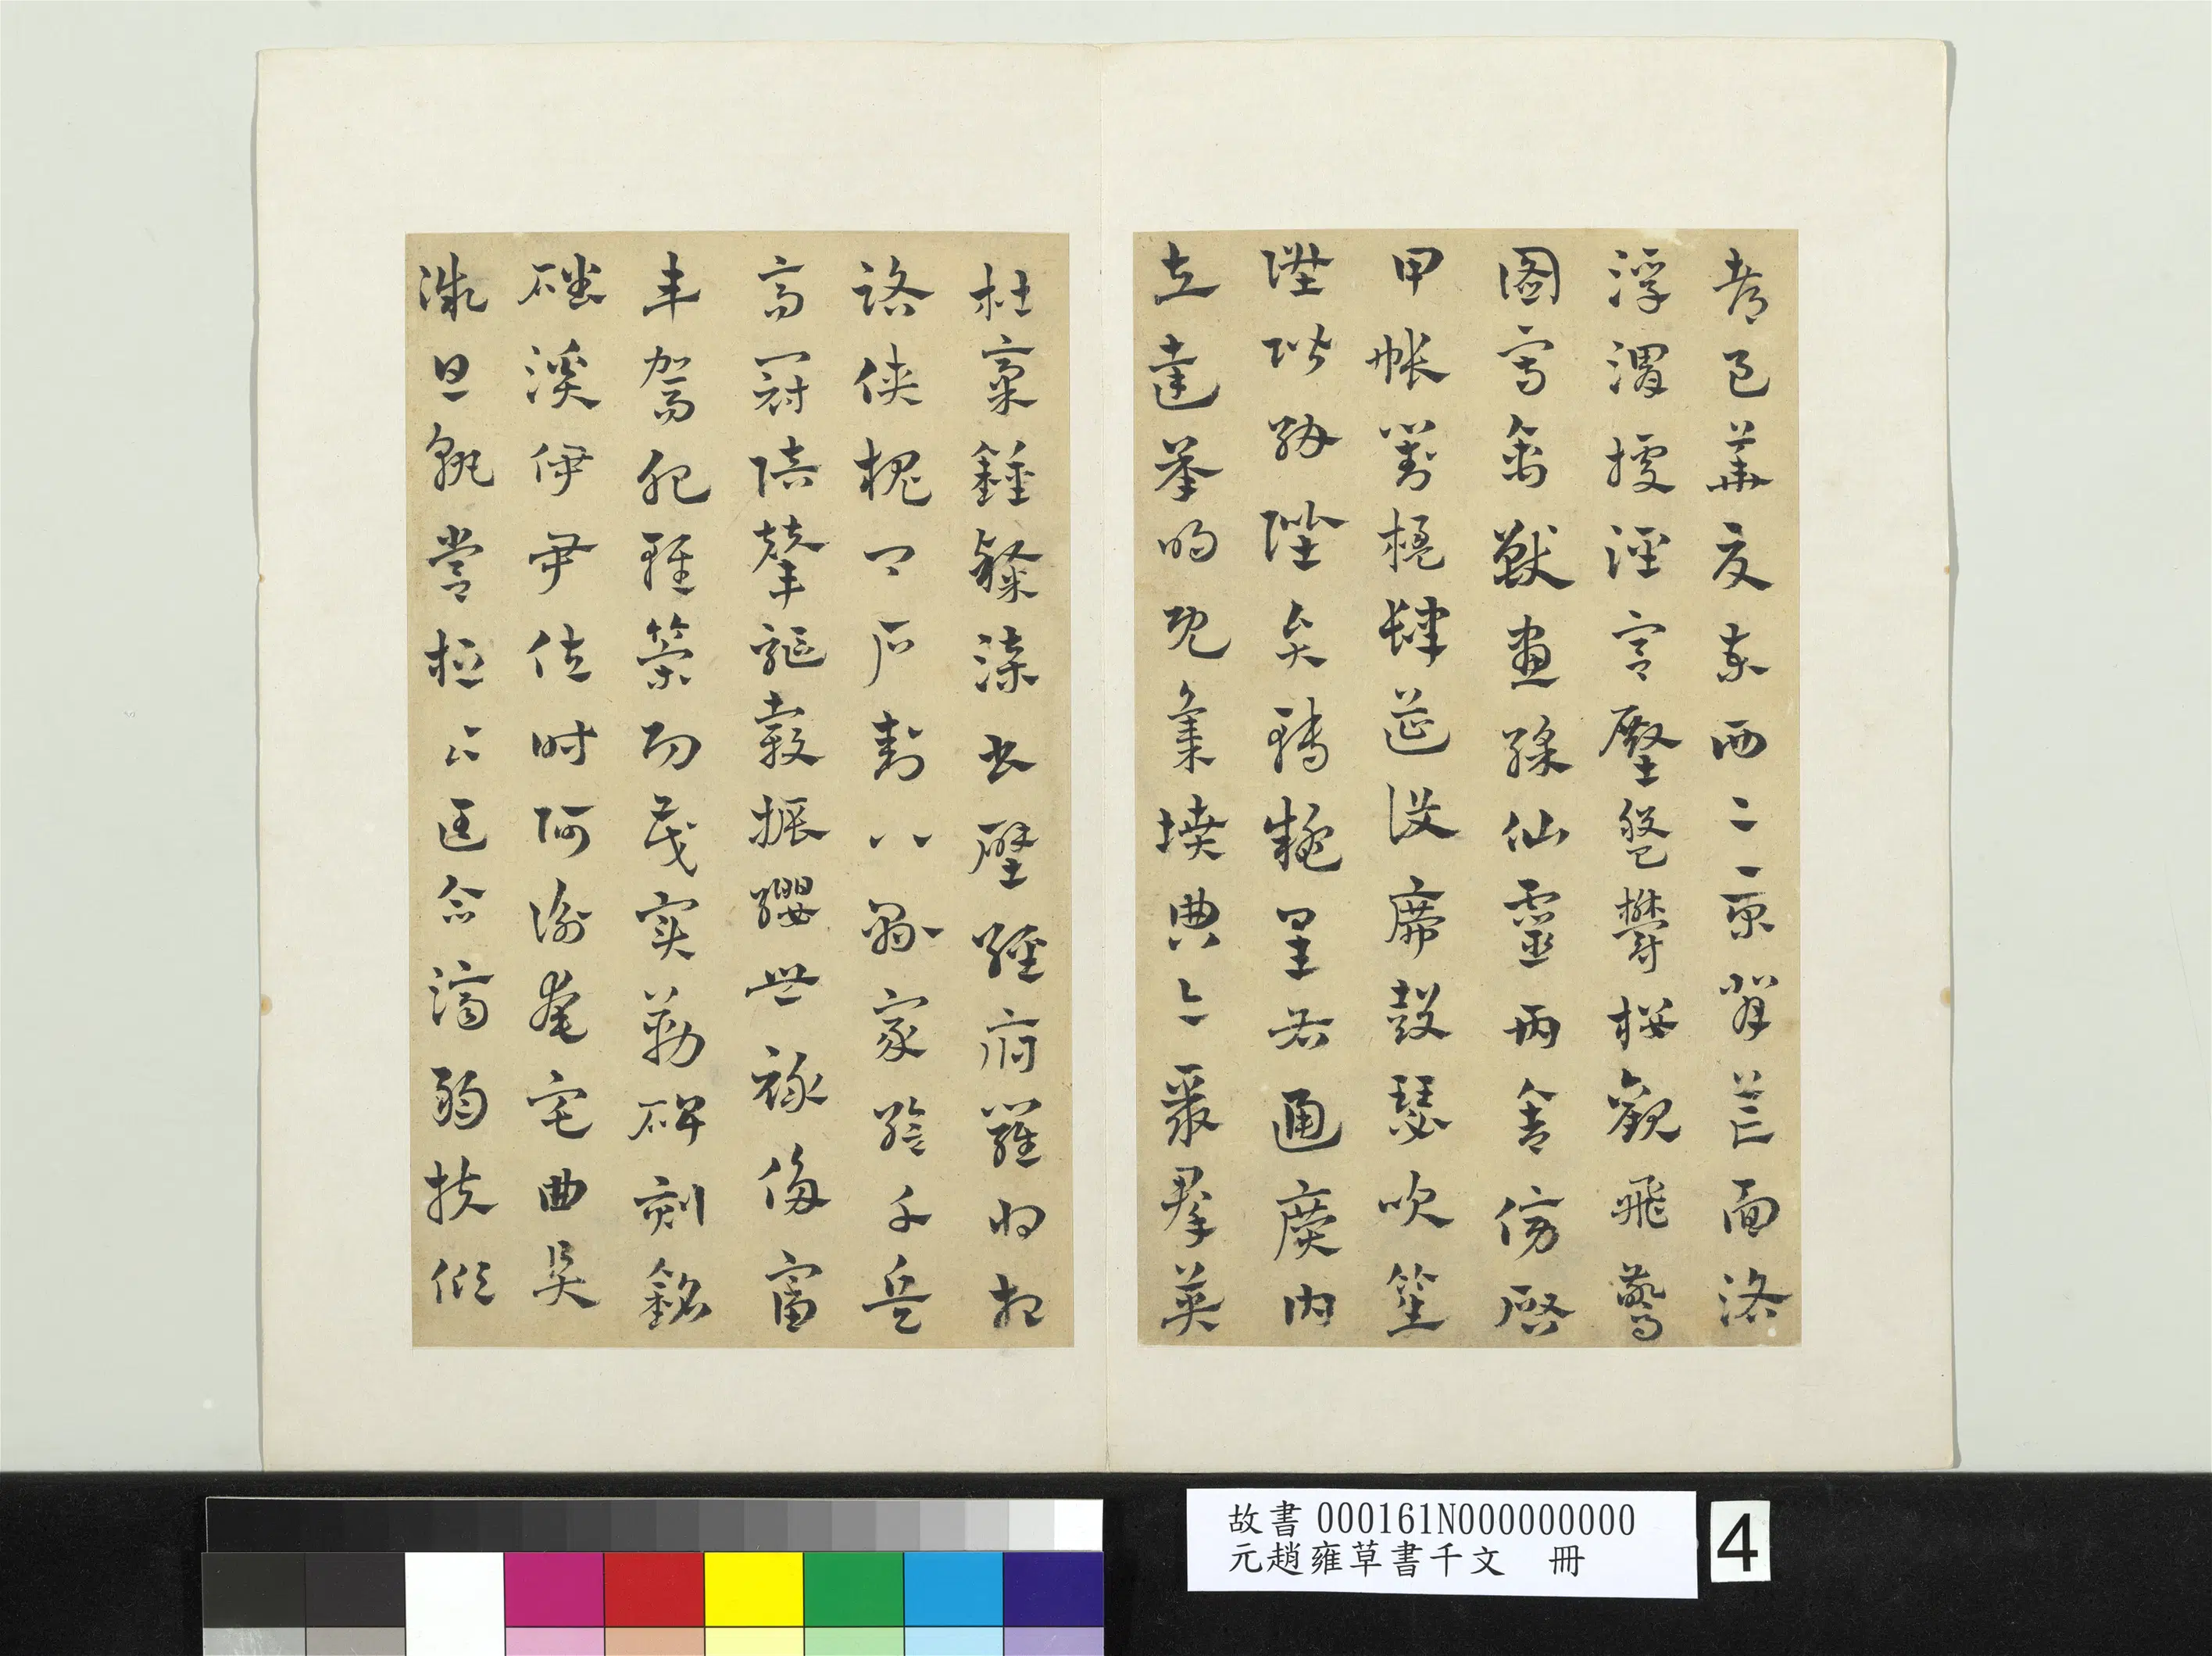 都邑華夏東西二京背芒面洛
浮渭據涇宮殿盤鬱樓觀飛驚
圖寫禽獸畫綵仙靈丙舍傍啓
甲帳對楹肆筵設席鼓瑟吹笙
陞階納陛弁轉疑星右通廣內
左達承明既集墳典亦聚羣英
杜稾鍾隸漆書壁經府羅將相
路俠槐卿戶封八縣家給千兵
高冠陪輦驅轂振纓世祿侈富
車駕肥輕策功茂實勒碑刻銘
磻溪伊尹佐時阿衡奄宅曲阜
微旦孰營桓公匡合濟弱扶傾
故書 000161N000000000
元趙雍草書千文 冊
4